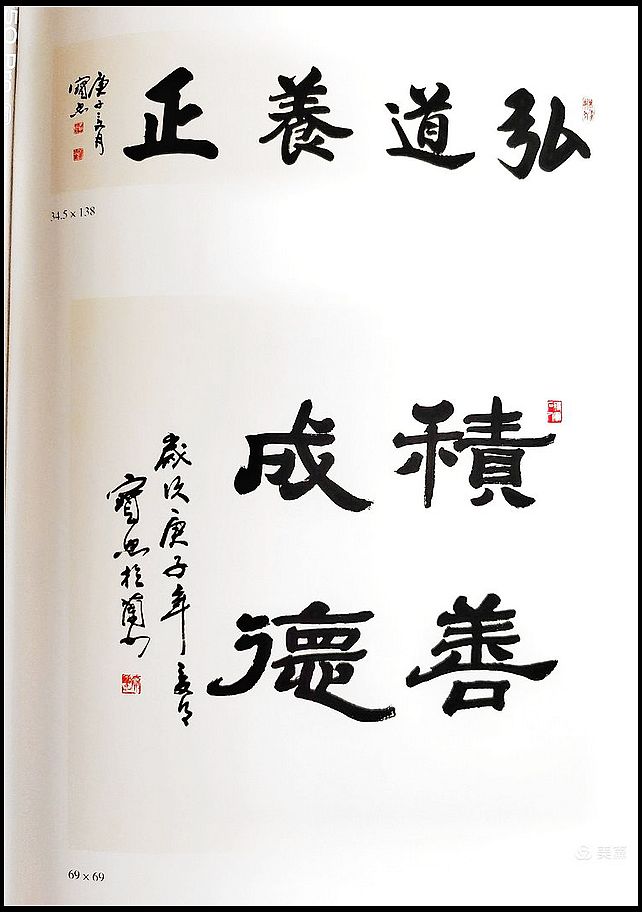 弘道養正
庚子三月
寶忠
34.5 x 138
積善
成德
歲次庚子年
寶忠於蘭州
69 x 69
美篇